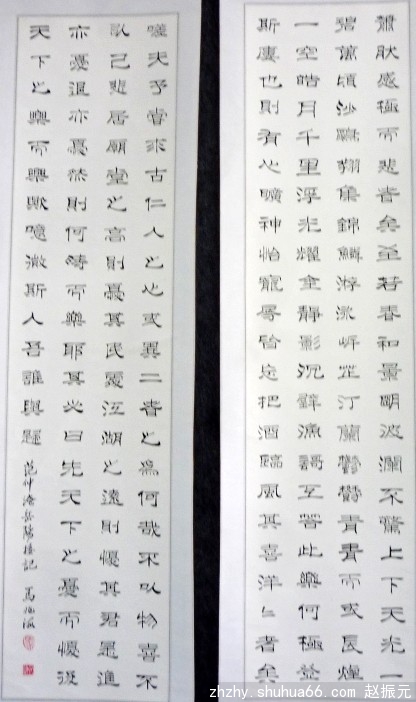 蕭肰感極而悲者矣至若春和景明波瀾不驚上下天光一
碧萬頃沙鷗翔集錦鱗游泳岸芷汀蘭鬱鬱青青而或長煙
一空皓月千里浮光耀金靜影沉璧漁謌互答此樂何極登
斯樓也則有心曠神怡寵辱皆忘把酒臨風其喜洋〻者矣
嗟夫予嘗求古仁人之心或異二者之為何哉不以物喜不
以己悲居廟堂之高則憂其民處江湖之遠則憂其君是進
亦憂退亦憂然則何時而樂耶其必曰先天下之憂而憂後
天下之樂而樂歟噫微斯人吾誰與歸 范仲淹岳陽樓記 馬
zhzhy.shuhua66.com 赵振元